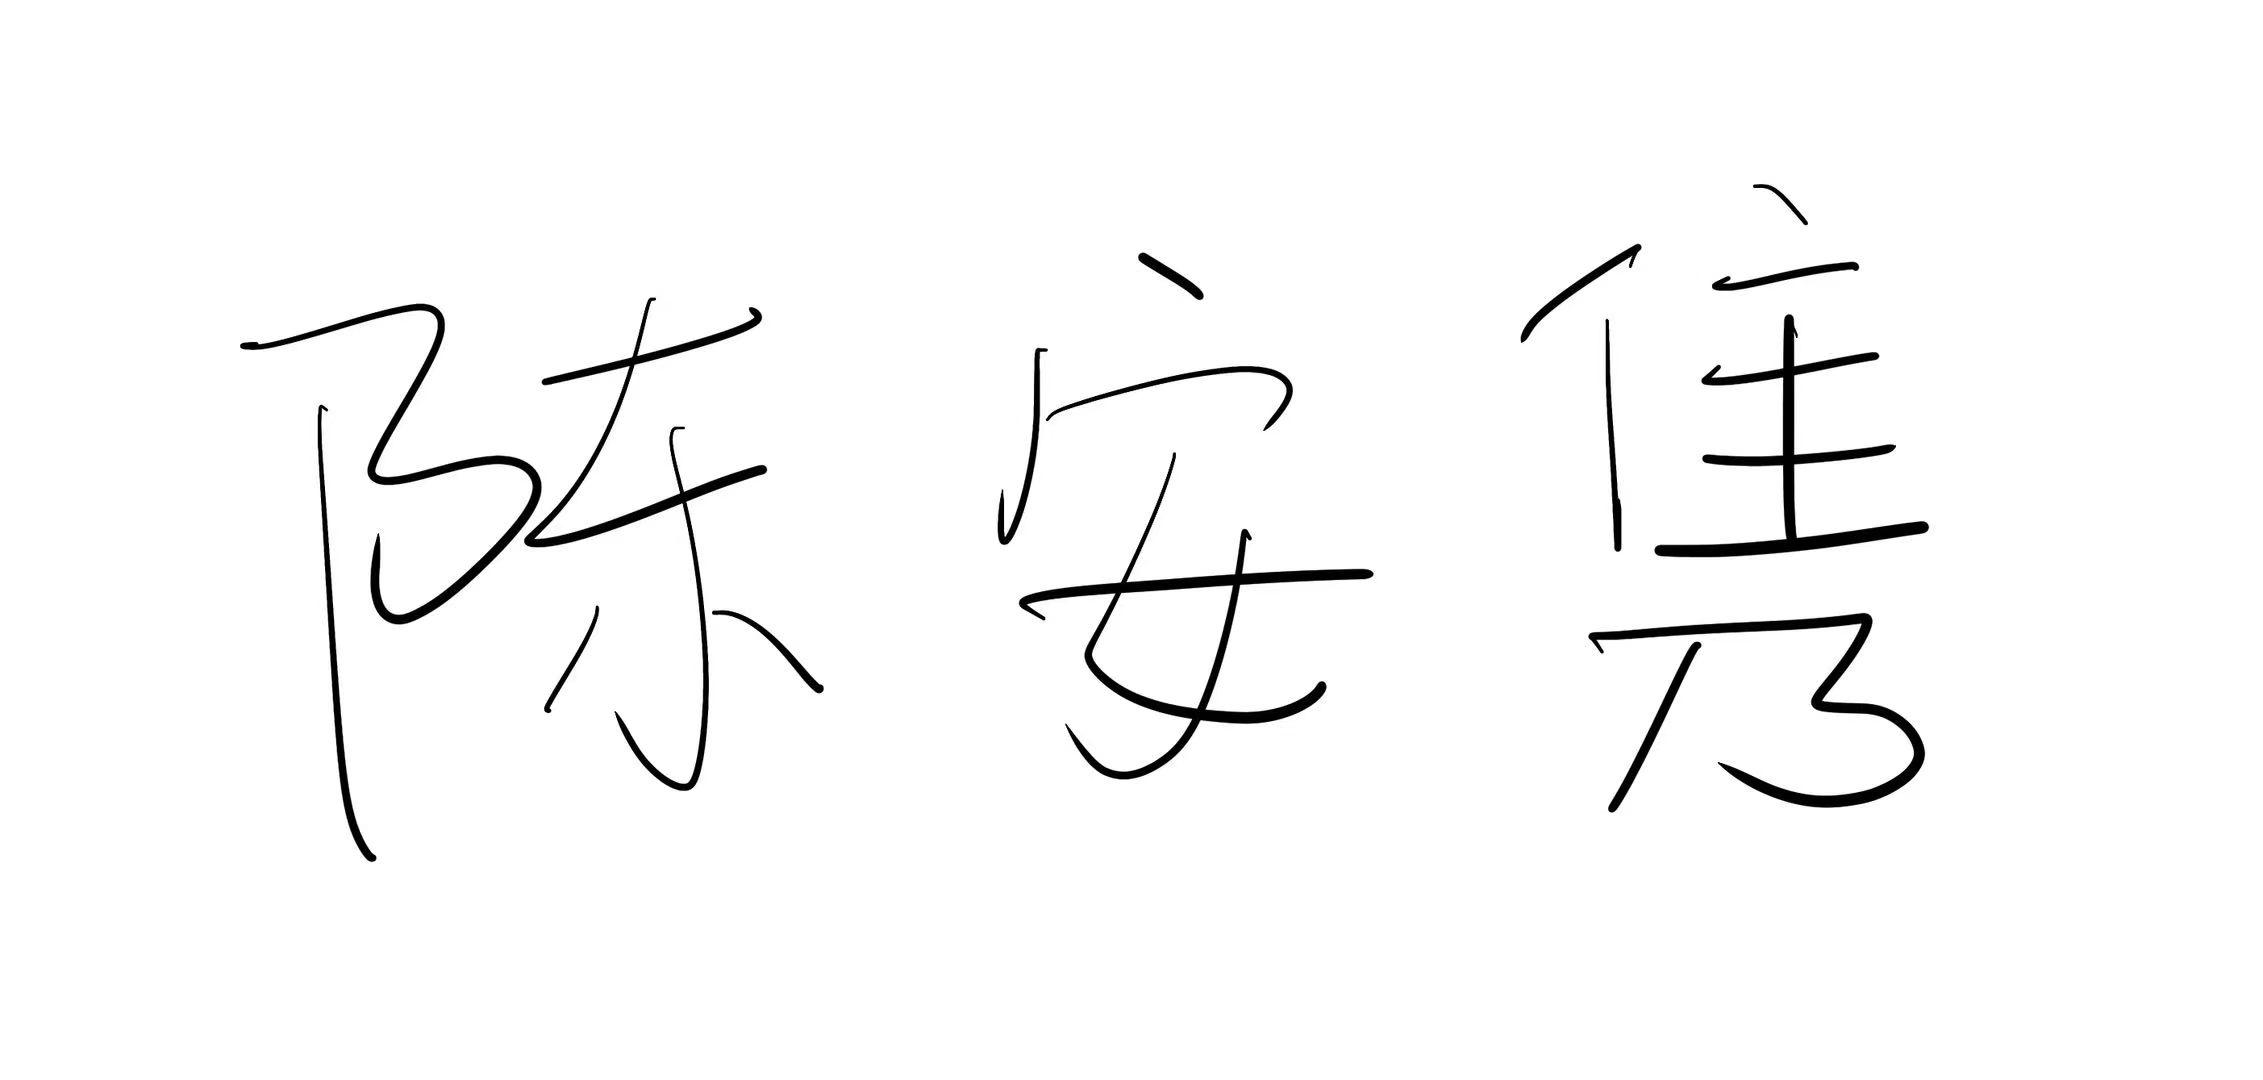 陈安隽